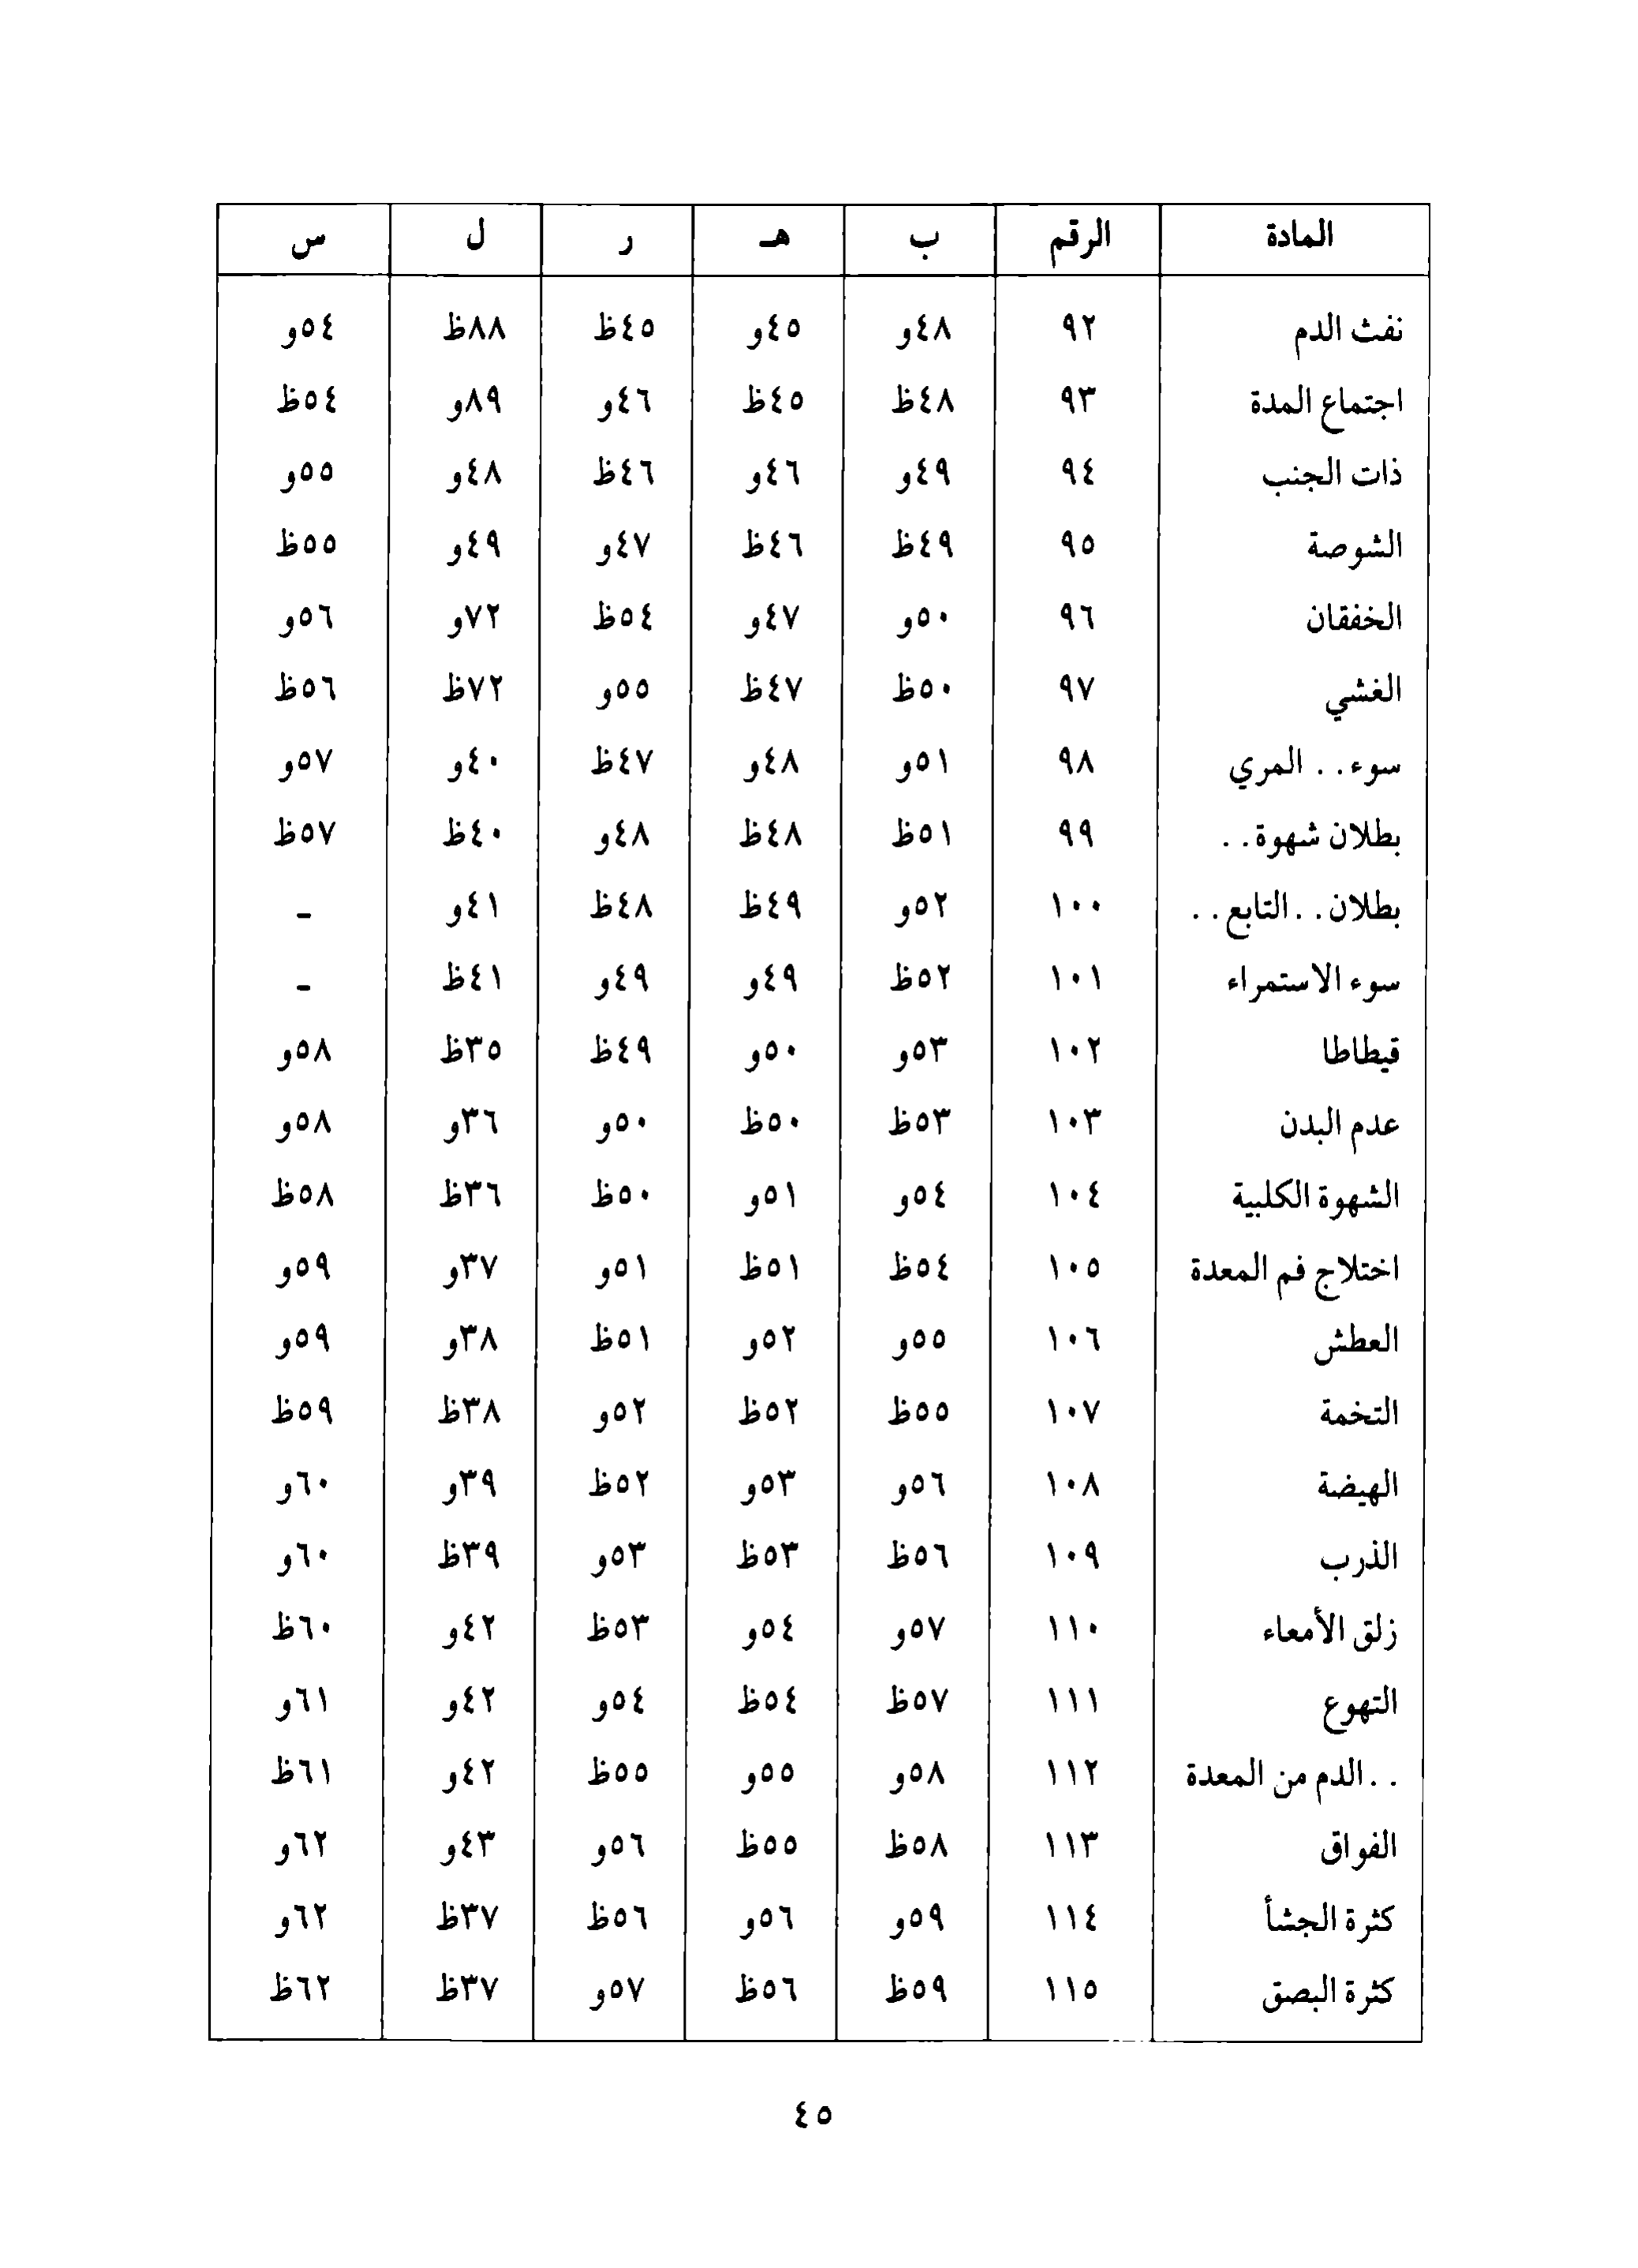 المادة الرقم ب هـ ر ل س
نفث الدم ٩٢ ٤٨و ٤٥و ٤٥ظ ٨٨ظ ٥٤و
اجتماع المدة ٩٣ ٤٨ظ ٤٥ظ ٤٦و ٨٩و ٥٤ظ
ذات الجنب ٩٤ ٤٩و ٤٦و ٤٦ظ ٤٨و ٥٥و
الشوصة ٩٥ ٤٩ظ ٤٦ظ ٤٧و ٤٩و ٥٥ظ
الخفقان ٩٦ ٥٠و ٤٧و ٥٤ظ ٧٢و ٥٦و
الغشي ٩٧ ٥٠ظ ٤٧ظ ٥٥و ٧٢ظ ٥٦ظ
سوء.. المري ٩٨ ٥١و ٤٨و ٤٧ظ ٤٠و ٥٧و
بطلان شهوة.. ٩٩ ٥١ظ ٤٨ظ ٤٨و ٤٠ظ ٥٧ظ
بطلان..التابع.. ١٠٠ ٥٢و ٤٩ظ ٤٨ظ ٤١و -
سوء الاستمراء ١٠١ ٥٢ظ ٤٩و ٤٩و ٤١ظ -
قيطاطا ١٠٢ ٥٣و ٥٠و ٤٩ظ ٣٥ظ ٥٨و
عدم البدن ١٠٣ ٥٣ظ ٥٠ظ ٥٠و ٣٦و ٥٨و
الشهوة الكلبية ١٠٤ ٥٤و ٥١و ٥٠ظ ٣٦ظ ٥٨ظ
اختلاج فم المعدة ١٠٥ ٥٤ظ ٥١ظ ٥١و ٣٧و ٥٩و
العطش ١٠٦ ٥٥و ٥٢و ٥١ظ ٣٨و ٥٩و
التخمة ١٠٧ ٥٥ظ ٥٢ظ ٥٢و ٣٨ظ ٥٩ظ
الهيضة ١٠٨ ٥٦و ٥٣و ٥٢ظ ٣٩و ٦٠و
الذرب ١٠٩ ٥٦ظ ٥٣ظ ٥٣و ٣٩ظ ٦٠و
زلق الأمعاء ١١٠ ٥٧و ٥٤و ٥٣ظ ٤٢و ٦٠ظ
التهوع ١١١ ٥٧ظ ٥٤ظ ٥٤و ٤٢و ٦١و
..الدم من المعدة ١١٢ ٥٨و ٥٥و ٥٥ظ ٤٢و ٦١ظ
الفواق ١١٣ ٥٨ظ ٥٥ظ ٥٦و ٤٣و ٦٢و
كثرة الجشأ ١١٤ ٥٩و ٥٦و ٥٦ظ ٣٧ظ ٦٢و
كثرة البصق ١١٥ ٥٩ظ ٥٦ظ ٥٧و ٣٧ظ ٦٢ظ
٤٥